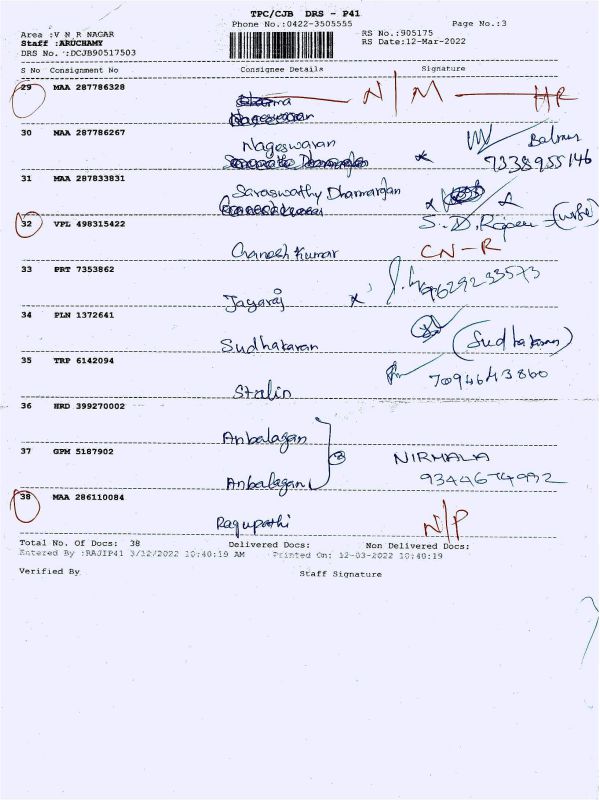 TPC/CJB DRS - P41
Phone No.:0422-3505555 Page No.:3
Area :V N R NAGAR RS No.:905175
Staff :ARUCHAMY RS Date:12-Mar-2022
DRS No. :DCJB90517503
S No Consignment No Consignee Details Signature
29 MAA 287786328 N/M HR
30 MAA 287786267
Nageswaran
7338955146
31 MAA 287833831
Saraswathy Dharmargan
32 VPL 498315422 S.D.
Ganesh Kumar CN-R
33 PRT 7353862
Jayaraj 9629233573
34 PLN 1372641
Sudhakaran (Sudhakaran)
35 TRP 6142094
Stalin 7094643860
36 HRD 399270002
Anbalagan
37 GPM 5187902 NIRMALA
Anbalagan 9344674992
38 MAA 286110084
Ragupathi N/P
Total No. Of Docs: 38 Delivered Docs: Non Delivered Docs:
Entered By :RAJIP41 3/12/2022 10:40:19 AM Printed On: 12-03-2022 10:40:19
Verified By Staff Signature